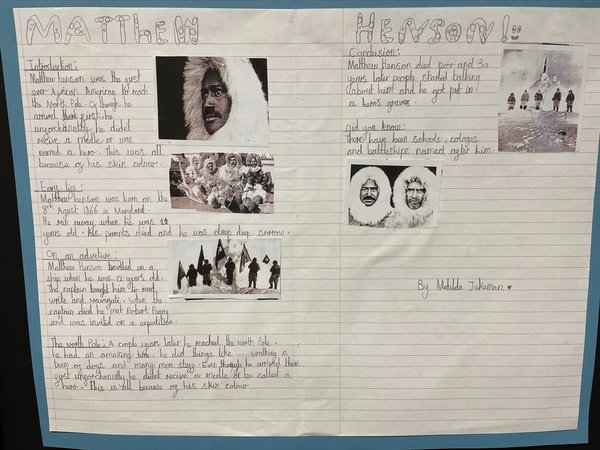 MATTHEW HENSON!
Introduction:
Matthew henson was the first
ever African American to reach
the North Pole. Although he
arrived there first he
unforchantly he didn't
recive a medle or was
named a hero. This was all
because of his skin colour.
Early life:
Matthew henson was born on the
8th Agust 1866 in Maryland.
He ran away when he was 11
years old. His parents died and he was deep deep sorrow.
On an adveture:
Matthew Henson travelled on a
ship when he was 12 years old.
The captain taught him to read,
write and navigate. When the
captain died he met Robert Peary
and was invited on a expedition.
The north Pole: A couple years later he reached the north Pole.
he had an amazing time. he did things like... walking a
team of dogs and many more stuff. Even though he arrived there
first unforchantly he didnt recive a medle or be called a
hero. This is all because of his skin colour
Conclusion:
Matthew Henson died poor and 30
years later people started talking
about him and he got put in
a hero's graves.
Did you know:
There have been schools, collages
and battleships named after him.
By Matilda Jakeman